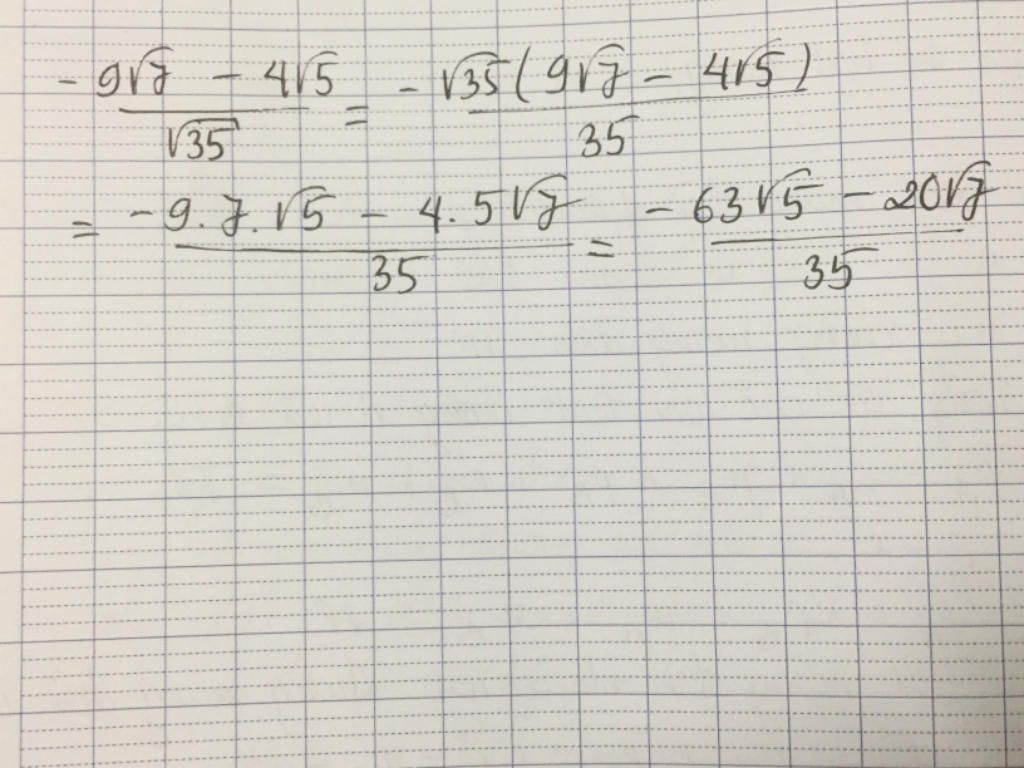 - \frac{9\sqrt{7} - 4\sqrt{5}}{\sqrt{35}} = - \frac{\sqrt{35}(9\sqrt{7} - 4\sqrt{5})}{35}
= - \frac{9.7.\sqrt{5} - 4.5\sqrt{7}}{35} = - \frac{63\sqrt{5} - 20\sqrt{7}}{35}